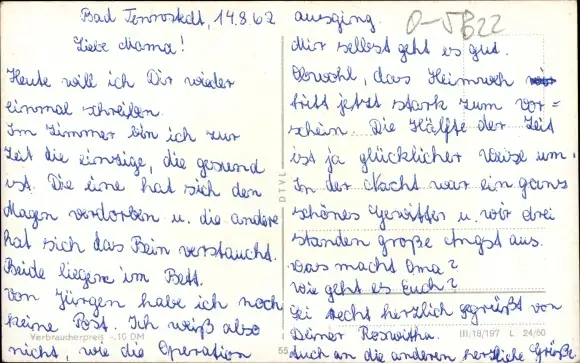 Bad Tennstedt, 14.8.62
Liebe Mama!
Heute will ich Dir wieder
einmal schreiben.
Im Zimmer bin ich zur
Zeit die einzige, die gesund
ist. Die eine hat sich den
Magen verdorben u. die andere
hat sich das Bein verstaucht.
Beide liegen im Bett.
Von Jürgen habe ich noch
keine Post. Ich weiß also
nicht, wie die Operation
Verbraucherpreis -.10 DM
DTVL
55
O-5B22
ausging.
Mir selbst geht es gut.
Obwohl, das Heimweh
tritt jetzt stark zum Vor=
schein. Die Hälfte der Zeit
ist ja glücklicher weise um.
In der Nacht war ein ganz
schönes Gewitter u. wir drei
standen große Angst aus.
Was macht Oma?
Wie geht es Euch?
Sei recht herzlich gegrüßt von
Deiner Roswitha.
III/18/197 L 24/60
Auch an die anderen herzliche Grüße